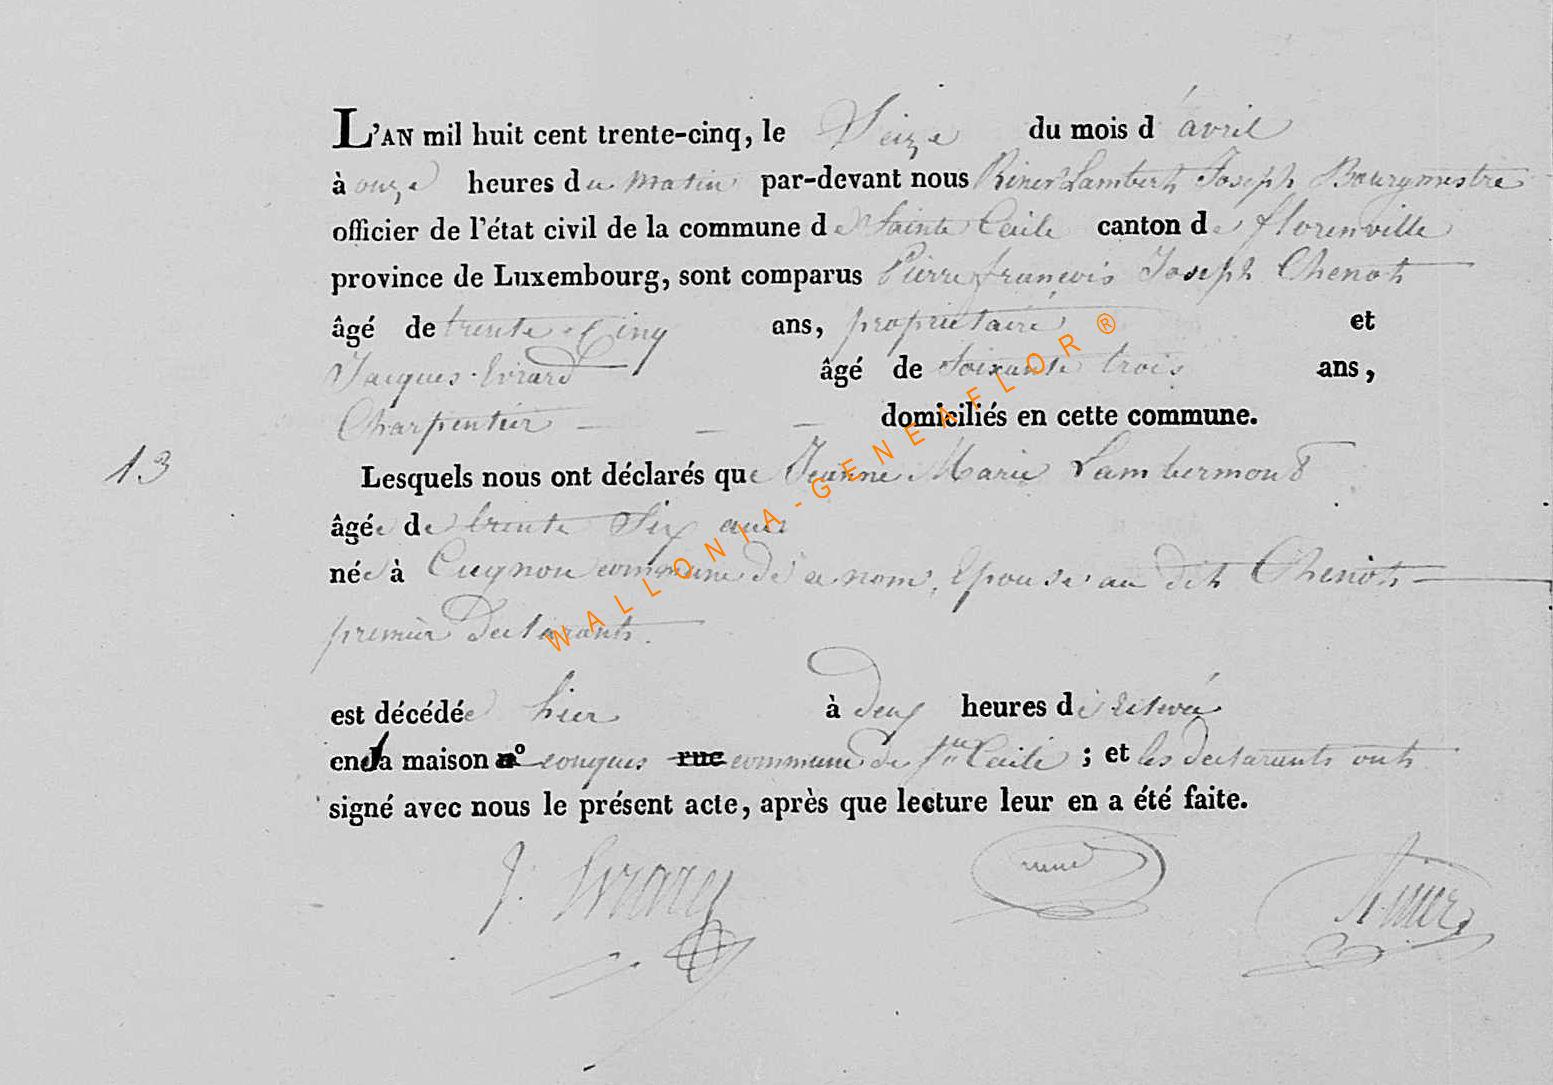 L'AN mil huit cent trente-cinq, le Seize du mois d'avril
à onze heures du matin par-devant nous Riner Lambert Joseph Bourgmestre
officier de l'état civil de la commune de Sainte Cecile canton de florenville
province de Luxembourg, sont comparus Pierre françois Joseph Chenot
âgé de trente Cinq ans, propriétaire et
Jacques Evrard âgé de Soixante trois ans,
Charpentier domiciliés en cette commune.
13
Lesquels nous ont déclarés que Jeanne Marie Lambermont
âgée de trente Six ans
née à Cugnon commune de ce nom, Epouse au dit Chenot
premier Declarant.
est décédée hier à deux heures de relevée
en la maison n° conques rue commune de Ste Cecile ; et les declarants ont
signé avec nous le présent acte, après que lecture leur en a été faite.
J. Evrard
WALLONIA-GENEAFLOR®